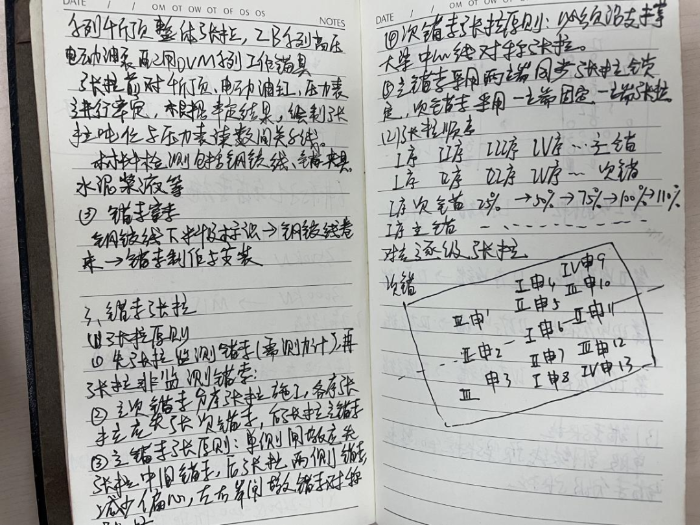 DATE / / OM OT OW OT OF OS OS NOTES
系列千斤顶整体张拉,ZB系列高压
电动油泵配用OVM系列工作锚具
张拉前对千斤顶、电动油缸、压力表
进行率定,根据率定结果,绘制张
拉吨位与压力表读数间关系线。
材料检测包括钢绞线、锚夹具、
水泥浆液等
③ 锚索安装
钢绞线下料 → 钢绞线卷
束 → 锚索制作与安装
3、锚索张拉
(1)张拉原则
① 先张拉监测锚索(索测力计),再
张拉非监测锚索;
② 主次锚索分序张拉施工,各序张
拉应先张次锚索,后张拉主锚索
③ 主锚索张原则:单侧间隔应先
张拉中间锚索,后张拉两侧锚索
减少偏心,左右岸间放锚索对称
DATE / / OM OT OW OT OF OS
④ 次锚索张拉原则:以次沿支撑
大梁中心线对称张拉。
⑤ 主锚索采用两端同步张拉锁
定,次锚索采用一端固定一端张拉
(2)张拉顺序
I序 II序 III序 IV序 … 主锚
I序 II序 III序 IV序 … 次锚
I序次锚索 25% → 50% → 75% → 100% → 110%
I序主锚
对拉逐级张拉
次锚
IV申9
I申4 III申10
III申1 II申5
I申6 II申11
III申2 II申7 III申12
III 申3 I申8 IV申13